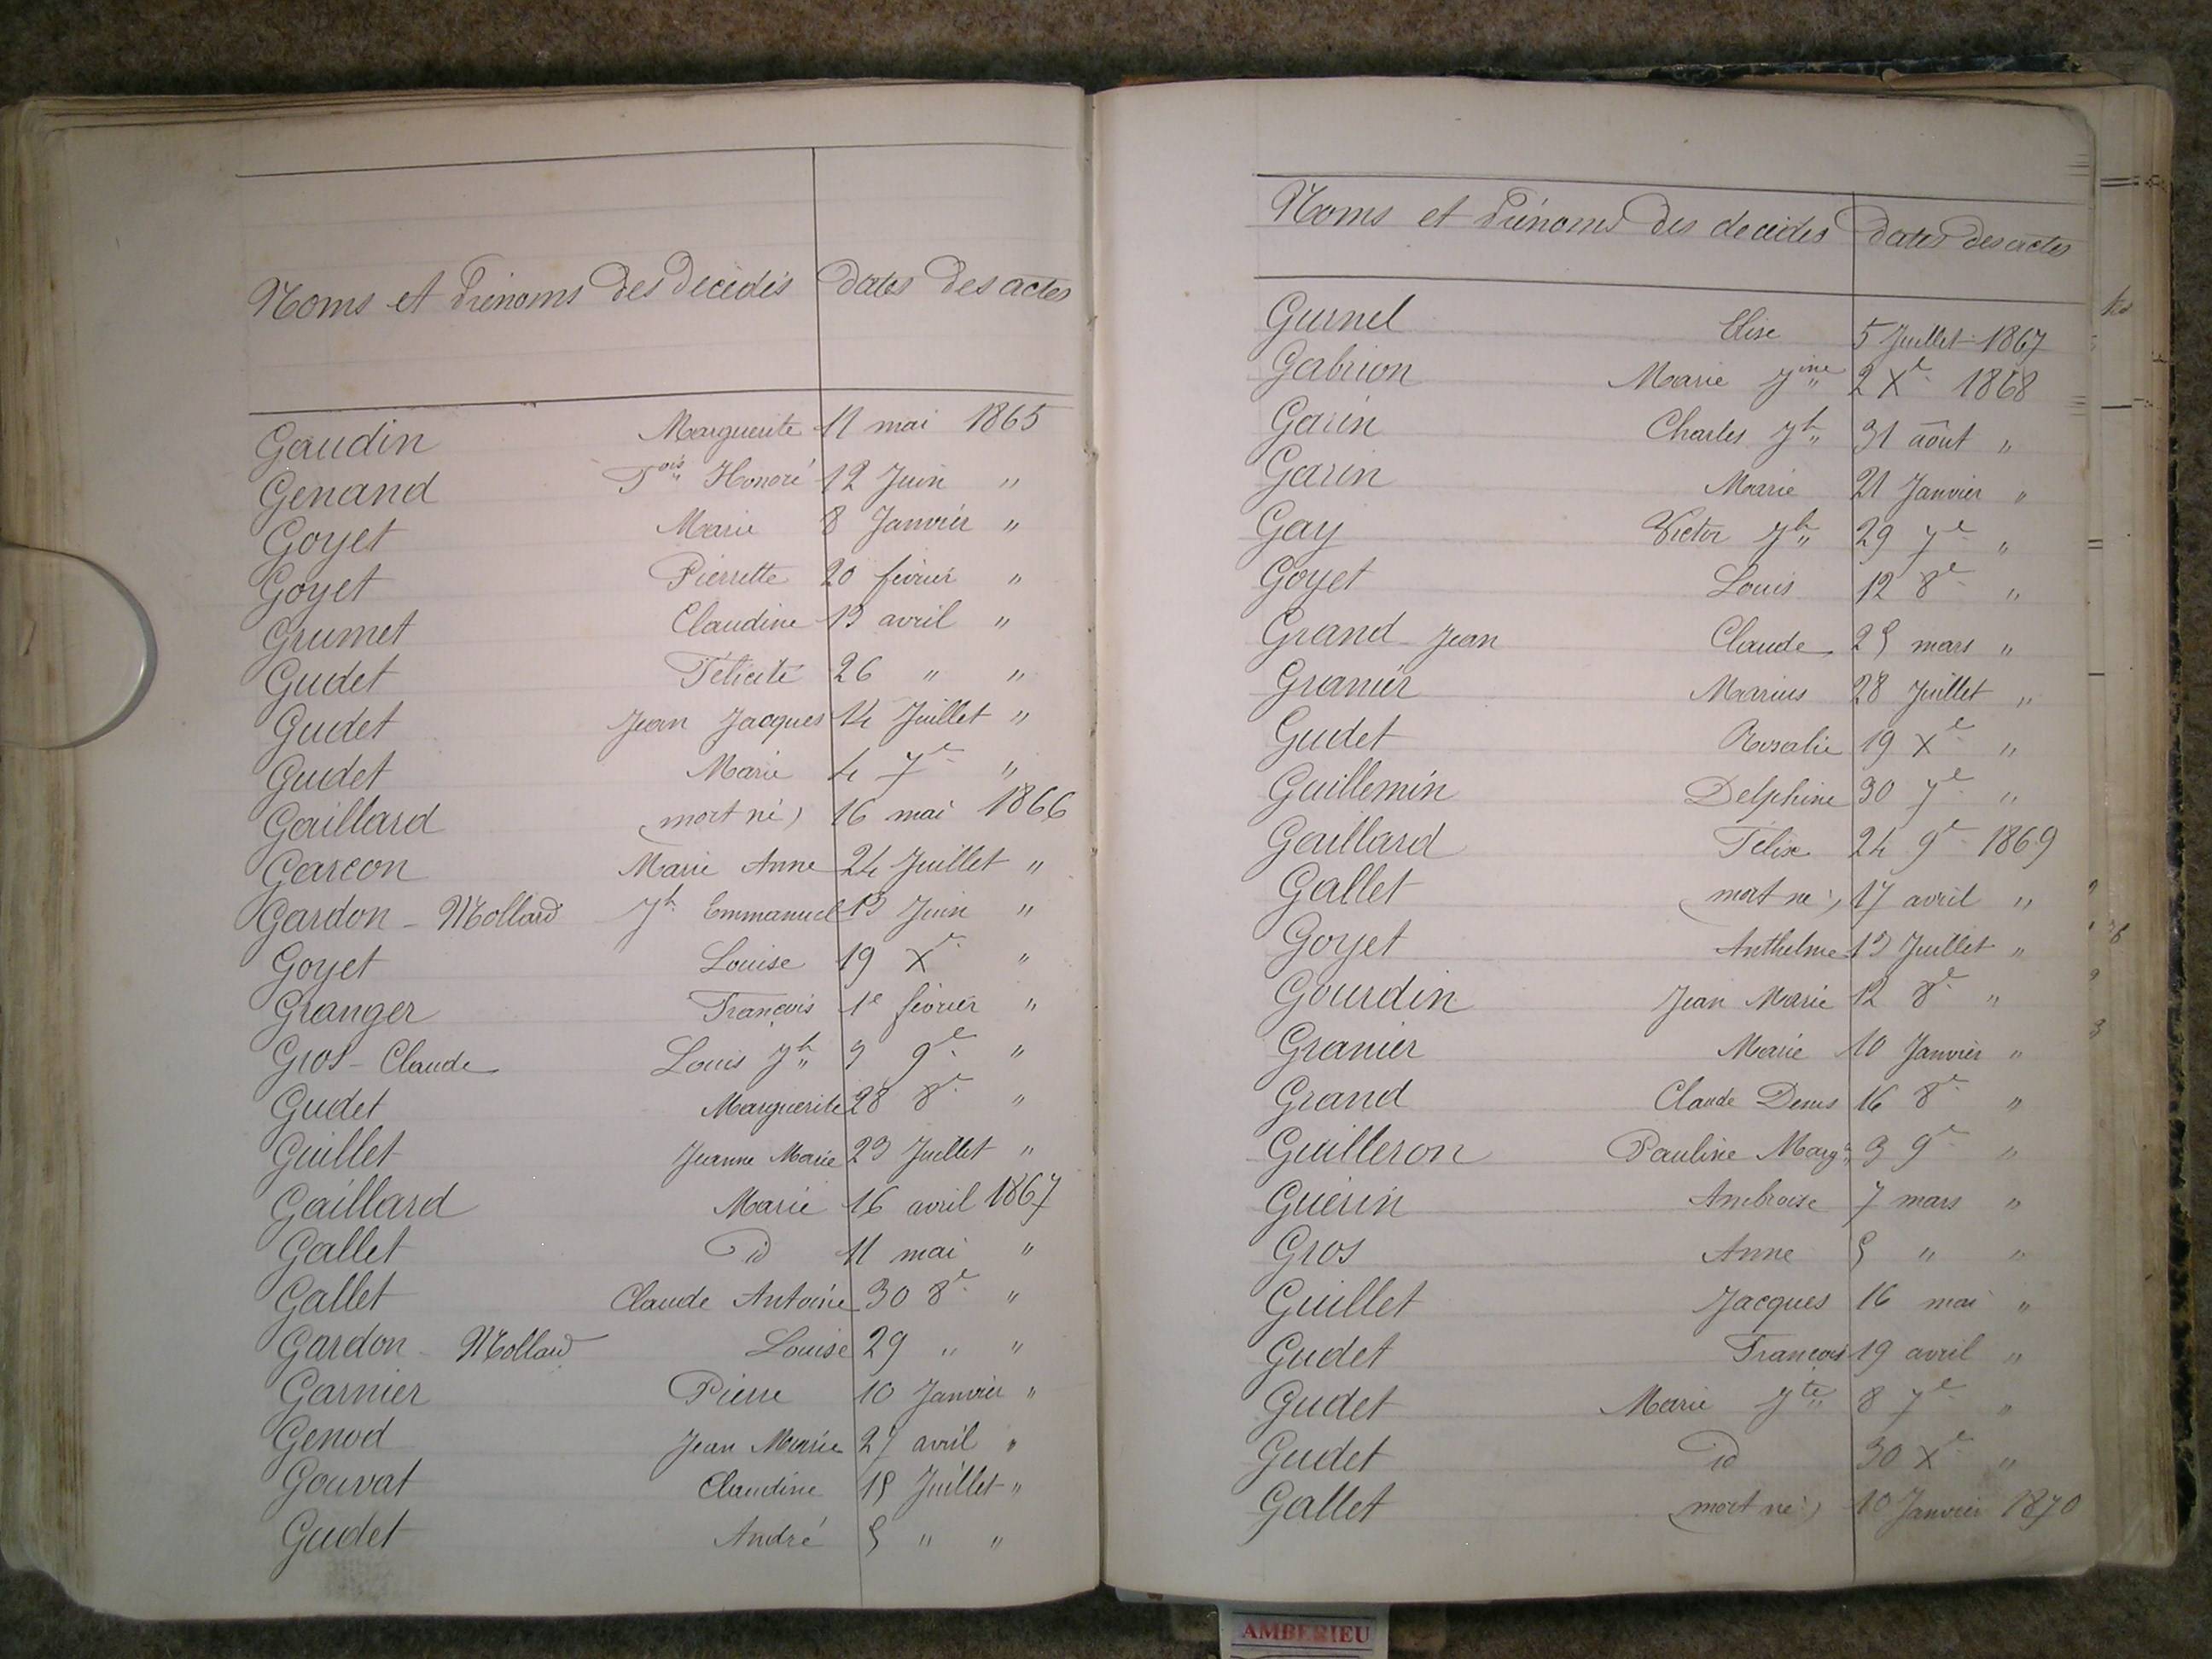 Noms et Prénoms des décédés dates des actes
Gaudin Marguerite 11 mai 1865
Genand Fois Honoré 12 Juin "
Goyet Marie 8 Janvier "
Goyet Pierrette 20 février "
Grumet Claudine 13 avril "
Gudet Félicité 26 " "
Gudet Jean Jacques 14 Juillet "
Gudet Marie 4 7e "
Gaillard (mort né) 16 mai 1866
Garcon Marie Anne 24 Juillet "
Gardon - Mollard Jh Emmanuel 13 Juin "
Goyet Louise 19 Xe "
Granger François 1e février "
Gros - Claude Louis Jh 3 9e "
Gudet Marguerite 28 8e "
Guillet Jeanne Marie 23 Juillet "
Gaillard Marie 16 avril 1867
Gallet id 11 mai "
Gallet Claude Antoine 30 8e "
Gardon - Mollard Louise 29 " "
Garnier Pierre 10 Janvier "
Genod Jean Marie 27 avril "
Gouvat Claudine 15 Juillet "
Gudet André 5 " "
Noms et Prénoms des décédés dates des actes
Gurnel Elise 5 Juillet 1867
Gabrion Marie Jine 2 Xe 1868
Garin Charles Jh 31 août "
Garin Marie 21 Janvier "
Gay Victor Jh 29 7e "
Goyet Louis 12 8e "
Grand Jean Claude 25 mars "
Granier Marius 28 Juillet "
Gudet Rosalie 19 Xe "
Guillemin Delphine 30 7e "
Gaillard Félix 24 9e 1869
Gallet (mort né) 17 avril "
Goyet Anthelme 13 Juillet "
Gourdin Jean Marie 12 8e "
Granier Marie 10 Janvier "
Grand Claude Denis 16 8e "
Guilleron Pauline Marg 3 9e "
Guérin Ambroise 7 mars "
Gros Anne 5 " "
Guillet Jacques 16 mai "
Gudet François 19 avril "
Gudet Marie Jte 8 7e "
Gudet id 30 Xe "
Gallet (mort né) 10 Janvier 1870
AMBERIEU